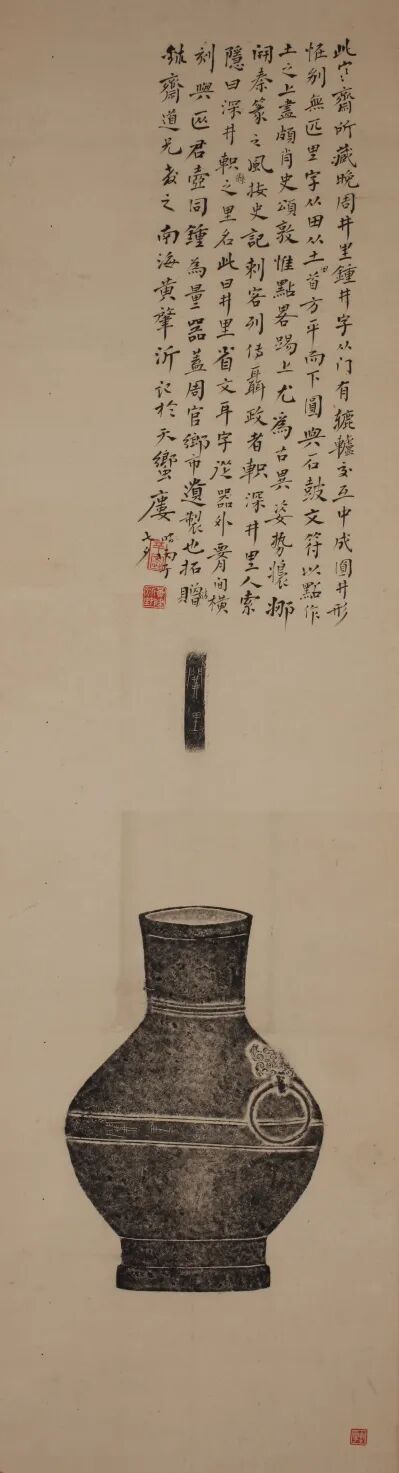 此宀齋所藏晚周井里鍾井字从门有轆轤交互中成圓井形
恠別無匹里字从田从土首方平而下圓與石鼓文符以點作
土之上畫頗肖史頌敦惟點畧踢上尤為古異姿勢懷娜
開秦篆之風按史記刺客列傳聶政者軹深井里人索
隱曰深井軹縣之里名此曰井里省文耳字在器外脣間橫
刻與匜君壺同鍾為量器蓋周官鄉市遺製也拓贈
齋道兄教之南海黃肇沂記於天蠁廔
時丙子
七夕
井里